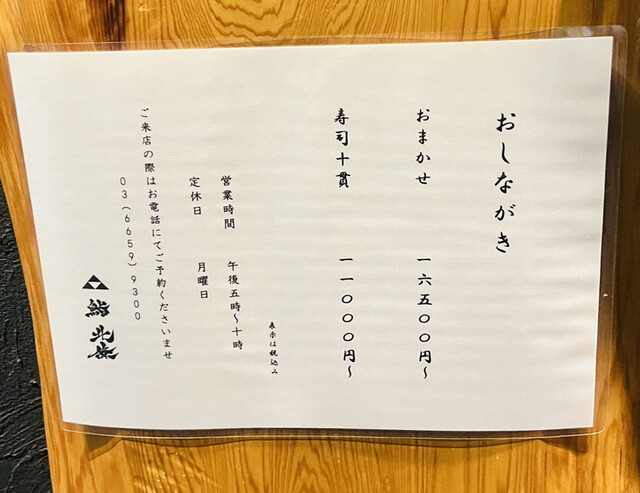 おしながき
おまかせ 一六五〇〇円～
寿司十貫 一一〇〇〇円～
表示は税込み
営業時間 午後五時～十時
定休日 月曜日
ご来店の際はお電話にてご予約くださいませ
03(6659)9300
鮨